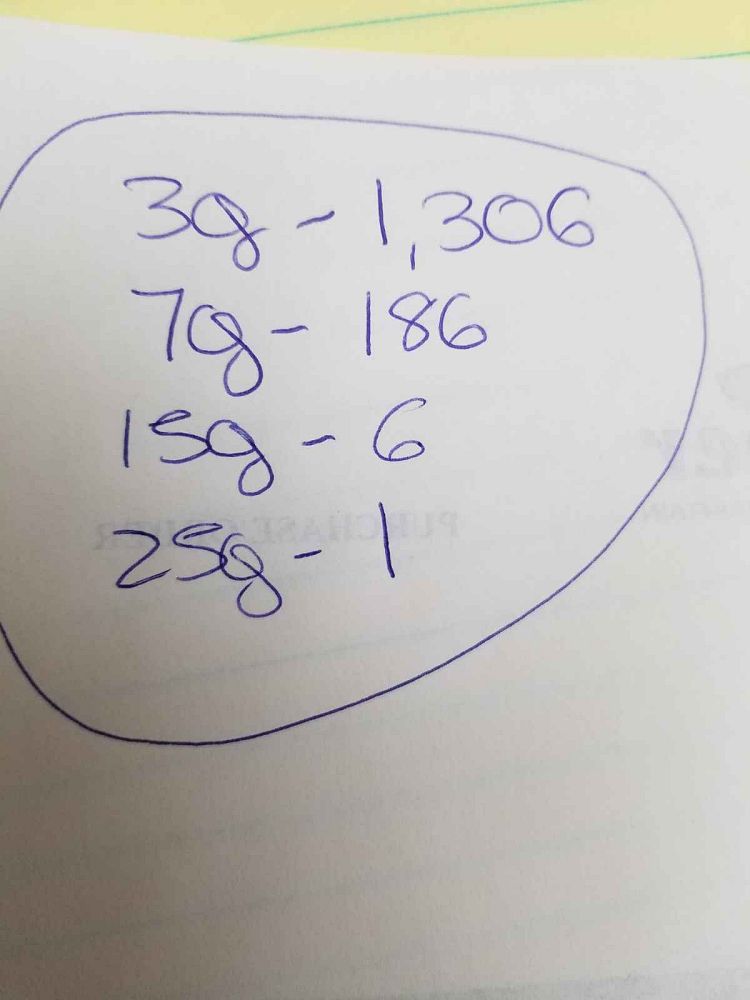 3g - 1,306
7g - 186
15g - 6
25g - 1
PURCHASE ORDER